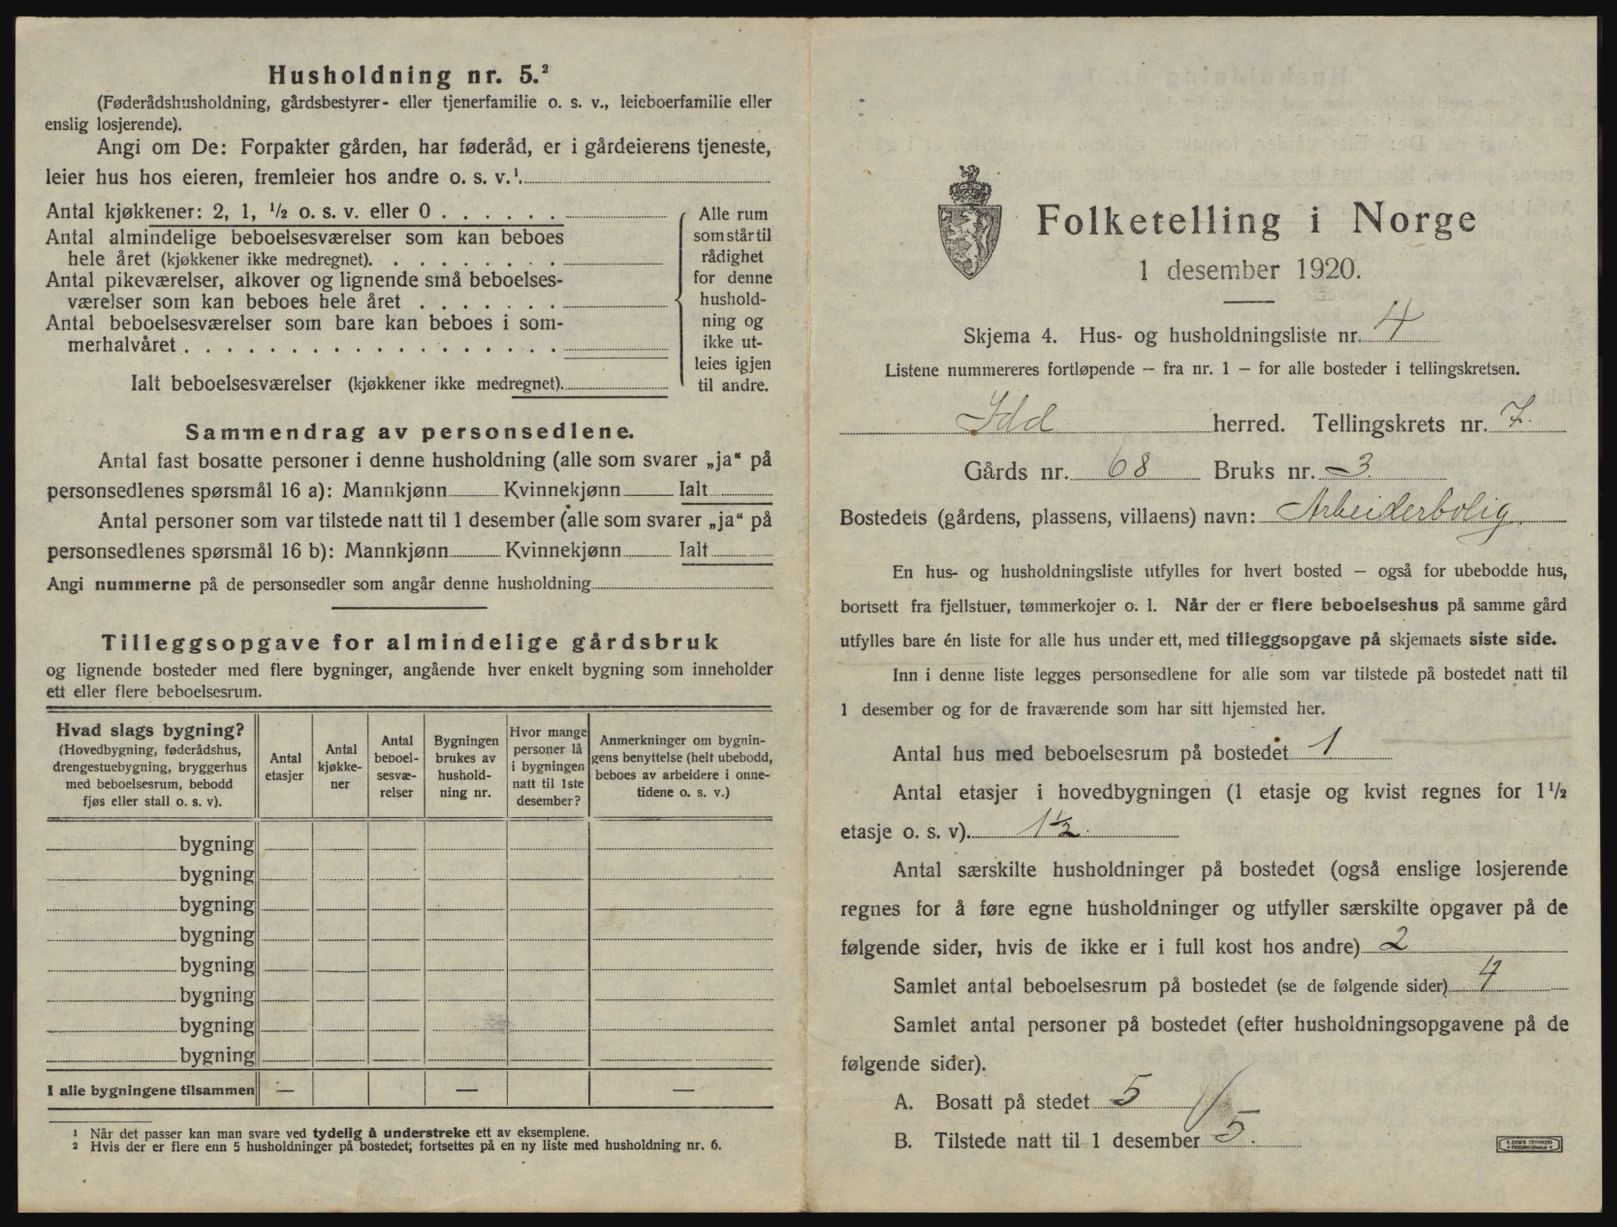 Husholdning nr. 5.²
(Føderådshusholdning, gårdsbestyrer- eller tjenerfamilie o. s. v., leieboerfamilie eller
enslig losjerende).
Angi om De: Forpakter gården, har føderåd, er i gårdeierens tjeneste,
leier hus hos eieren, fremleier hos andre o. s. v.¹
Antal kjøkkener: 2, 1, ½ o. s. v. eller 0
Antal almindelige beboelsesværelser som kan beboes
hele året (kjøkkener ikke medregnet).
Antal pikeværelser, alkover og lignende små beboelses-
værelser som kan beboes hele året
Antal beboelsesværelser som bare kan beboes i som-
merhalvåret
Ialt beboelsesværelser (kjøkkener ikke medregnet).
Alle rum
som står til
rådighet
for denne
hushold-
ning og
ikke ut-
leies igjen
til andre.
Sammendrag av personsedlene.
Antal fast bosatte personer i denne husholdning (alle som svarer „ja“ på
personsedlenes spørsmål 16 a): Mannkjønn Kvinnekjønn Ialt
Antal personer som var tilstede natt til 1 desember (alle som svarer „ja“ på
personsedlenes spørsmål 16 b): Mannkjønn Kvinnekjønn Ialt
Angi nummerne på de personsedler som angår denne husholdning
Tilleggsopgave for almindelige gårdsbruk
og lignende bosteder med flere bygninger, angående hver enkelt bygning som inneholder
ett eller flere beboelsesrum.
Hvad slags bygning?
(Hovedbygning, føderådshus,
drengestuebygning, bryggerhus
med beboelsesrum, bebodd
fjøs eller stall o. s. v).
Antal
etasjer
Antal
kjøkke-
ner
Antal
beboel-
sesvæ-
relser
Bygningen
brukes av
hushold-
ning nr.
Hvor mange
personer lå
i bygningen
natt til 1ste
desember?
Anmerkninger om bygnin-
gens benyttelse (helt ubebodd,
beboes av arbeidere i onne-
tidene o. s. v.)
bygning
bygning
bygning
bygning
bygning
bygning
bygning
bygning
I alle bygningene tilsammen — — —
¹ Når det passer kan man svare ved tydelig å understreke ett av eksemplene.
² Hvis der er flere enn 5 husholdninger på bostedet; fortsettes på en ny liste med husholdning nr. 6.
Folketelling i Norge
1 desember 1920.
Skjema 4. Hus- og husholdningsliste nr. 4
Listene nummereres fortløpende — fra nr. 1 — for alle bosteder i tellingskretsen.
Idd herred. Tellingskrets nr. 7.
Gårds nr. 68 Bruks nr. 3.
Bostedets (gårdens, plassens, villaens) navn: Arbeiderbolig.
En hus- og husholdningsliste utfylles for hvert bosted — også for ubebodde hus,
bortsett fra fjellstuer, tømmerkojer o. l. Når der er flere beboelseshus på samme gård
utfylles bare én liste for alle hus under ett, med tilleggsopgave på skjemaets siste side.
Inn i denne liste legges personsedlene for alle som var tilstede på bostedet natt til
1 desember og for de fraværende som har sitt hjemsted her.
Antal hus med beboelsesrum på bostedet 1
Antal etasjer i hovedbygningen (1 etasje og kvist regnes for 1½
etasje o. s. v). 1½.
Antal særskilte husholdninger på bostedet (også enslige losjerende
regnes for å føre egne husholdninger og utfyller særskilte opgaver på de
følgende sider, hvis de ikke er i full kost hos andre) 2
Samlet antal beboelsesrum på bostedet (se de følgende sider) 4
Samlet antal personer på bostedet (efter husholdningsopgavene på de
følgende sider).
A. Bosatt på stedet 5
B. Tilstede natt til 1 desember 5.